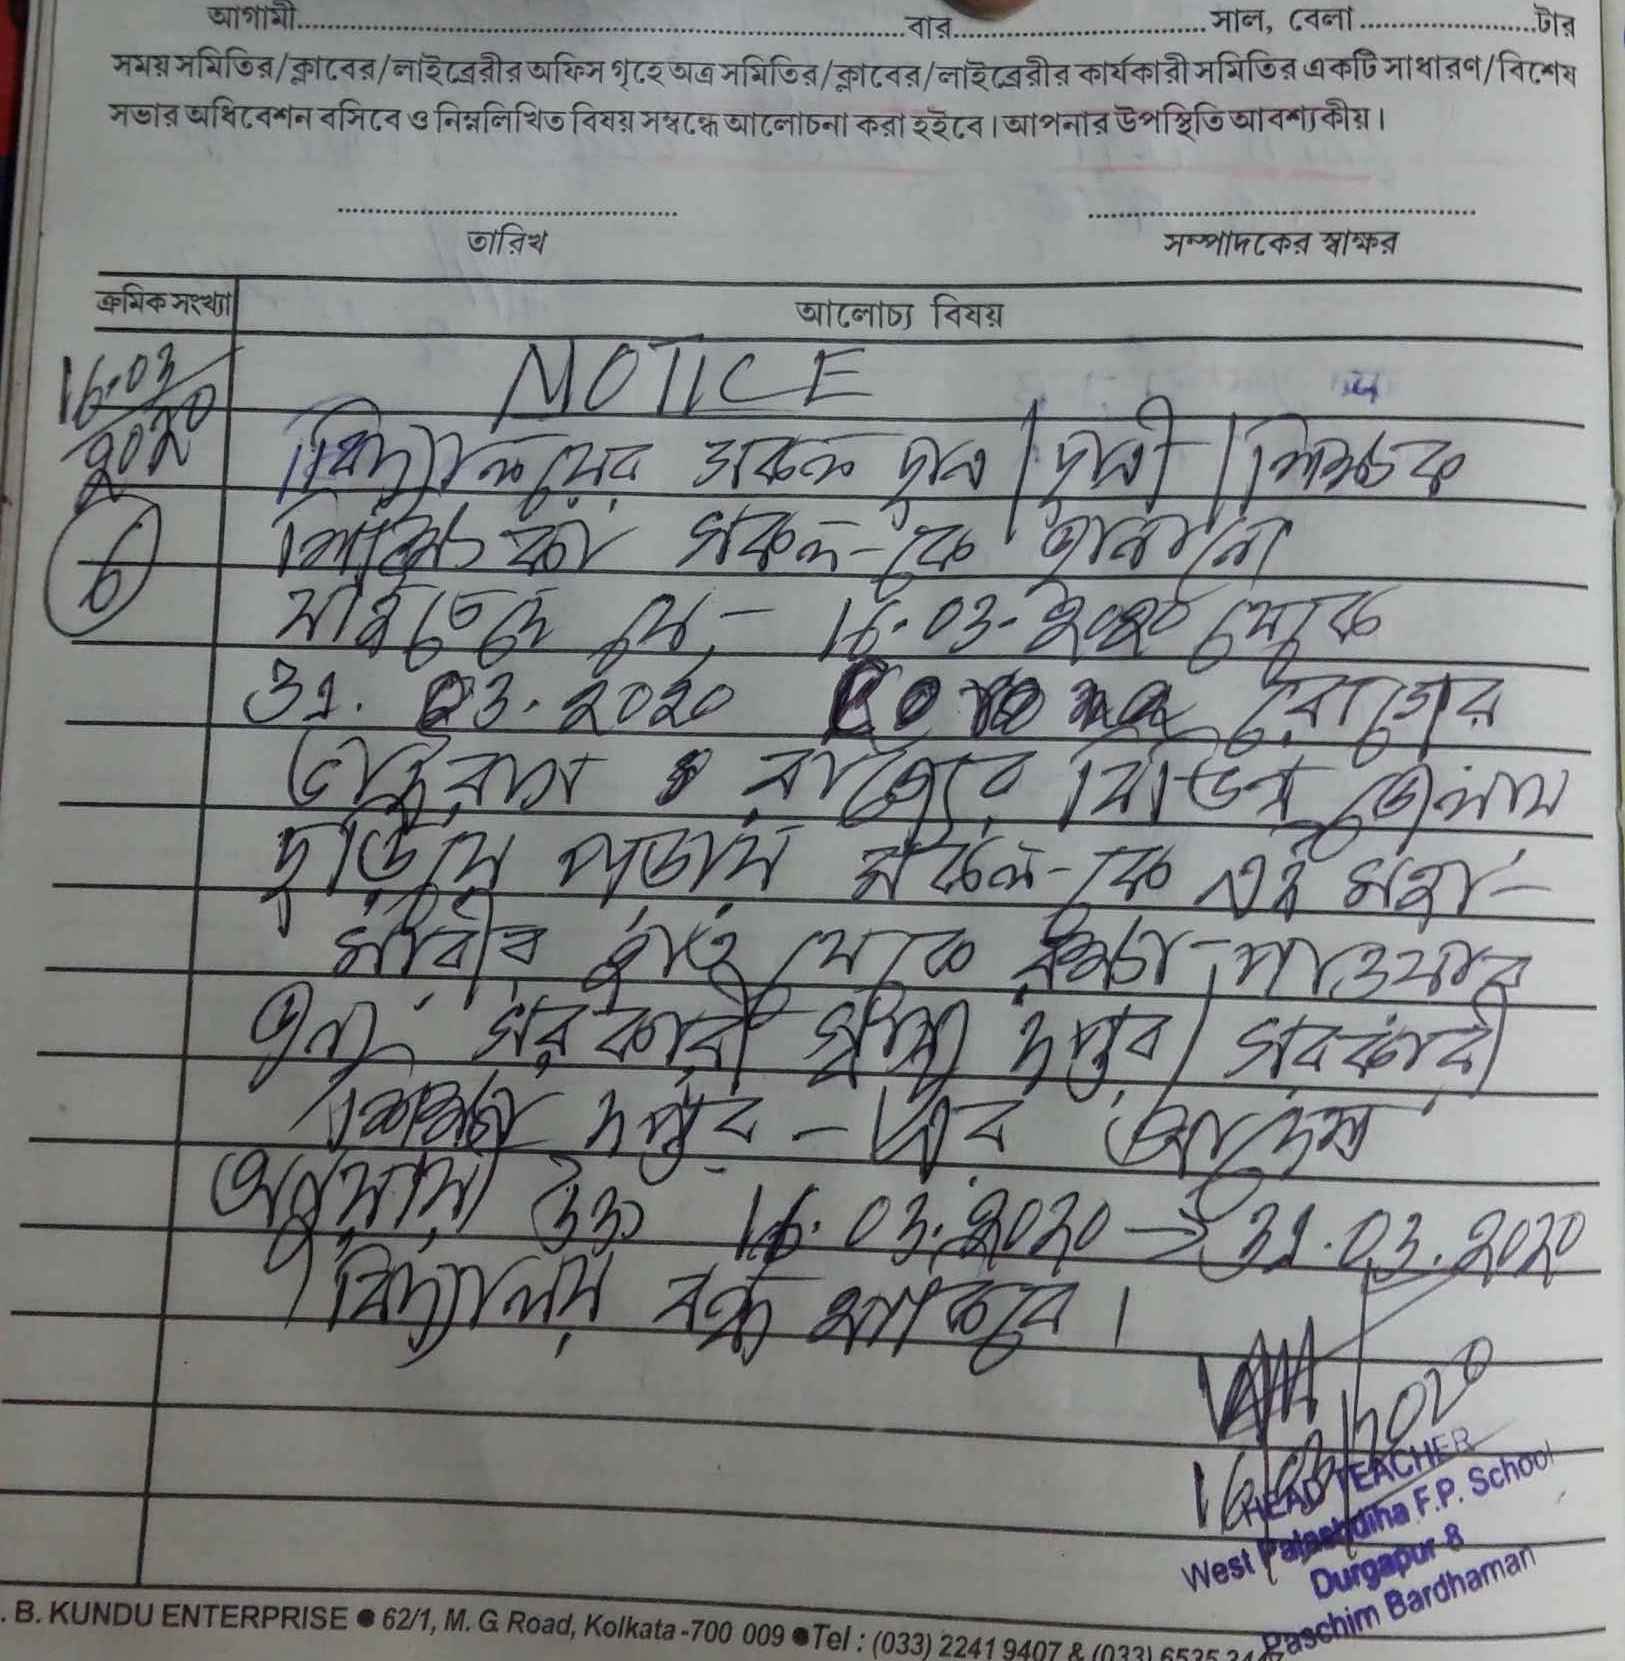 আগামী.....................................বার.........................সাল, বেলা..................টার
সময় সমিতির/ক্লাবের/লাইব্রেরীর অফিস গৃহে অত্র সমিতির/ক্লাবের/লাইব্রেরীর কার্যকারী সমিতির একটি সাধারণ/বিশেষ
সভার অধিবেশন বসিবে ও নিম্নলিখিত বিষয় সম্বন্ধে আলোচনা করা হইবে। আপনার উপস্থিতি আবশ্যকীয়।
তারিখ সম্পাদকের স্বাক্ষর
ক্রমিক সংখ্যা আলোচ্য বিষয়
16.03 NOTICE
2020 বিদ্যালয়ের সকল ছাত্র/ছাত্রী/শিক্ষক
শিক্ষিকা সকল-কে জানানো
যাইতেছে যে,- 16.03.2020 থেকে
31.03.2020 Corona রোগের
ভাইরাস রাজ্যের বিভিন্ন জেলায়
ছড়িয়ে পড়ায় সকল-কে এই মহা-
মারীর হাত থেকে রক্ষা পাওয়ার
জন্য সরকারী স্বাস্থ্য দপ্তর/সরকারী
শিক্ষা দপ্তর-এর আদেশ
অনুযায়ী উক্ত 16.03.2020 → 31.03.2020
বিদ্যালয় বন্ধ থাকবে।
16/03/2020
HEAD TEACHER
West Palashdiha F.P. School
Durgapur-8
Paschim Bardhaman
. B. KUNDU ENTERPRISE ● 62/1, M. G. Road, Kolkata -700 009 ● Tel : (033) 2241 9407 & (033) 6535